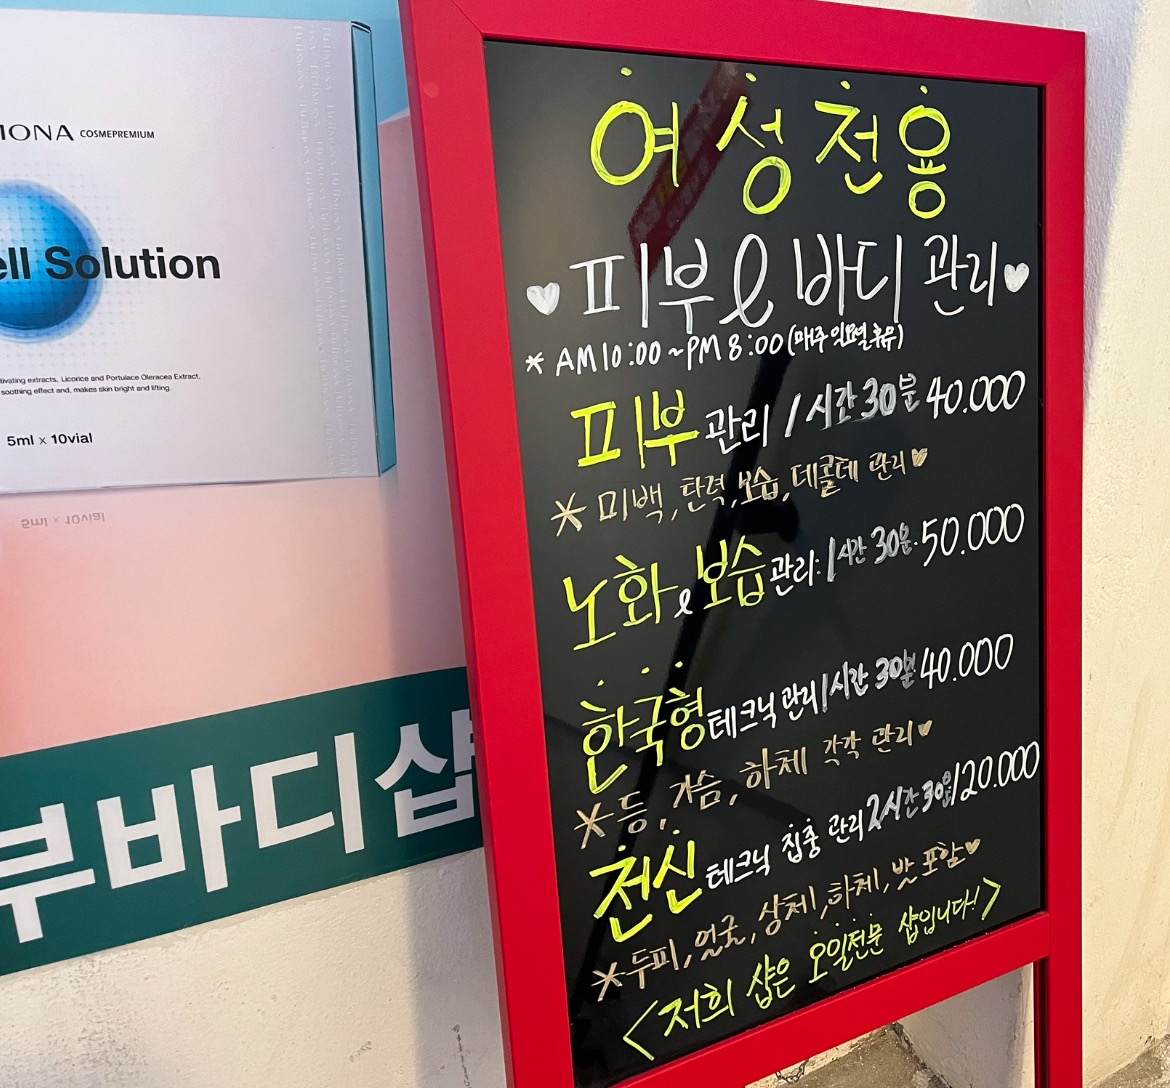 IONA COSMEPREMIUM
ell Solution
tivating extracts, Licorice and Portulace Oleracea Extract.
soothing effect and, makes skin bright and lifting.
5ml x 10vial
부바디샵
여성전용
♥ 피부 & 바디 관리 ♥
* AM10:00~PM8:00(매주 일요일 휴무)
피부 관리 1시간30분 40.000
* 미백, 탄력, 보습, 데콜테 관리♥
노화 & 보습관리:1시간 30분. 50.000
한국형테크닉 관리1시간 30분 40.000
* 등, 가슴, 하체 각각 관리♥
전신테크닉 집중 관리 2시간30분 120.000
* 두피, 얼굴, 상체, 하체, 발 포함♥
<저희 샵은 오일전문 샵입니다!>